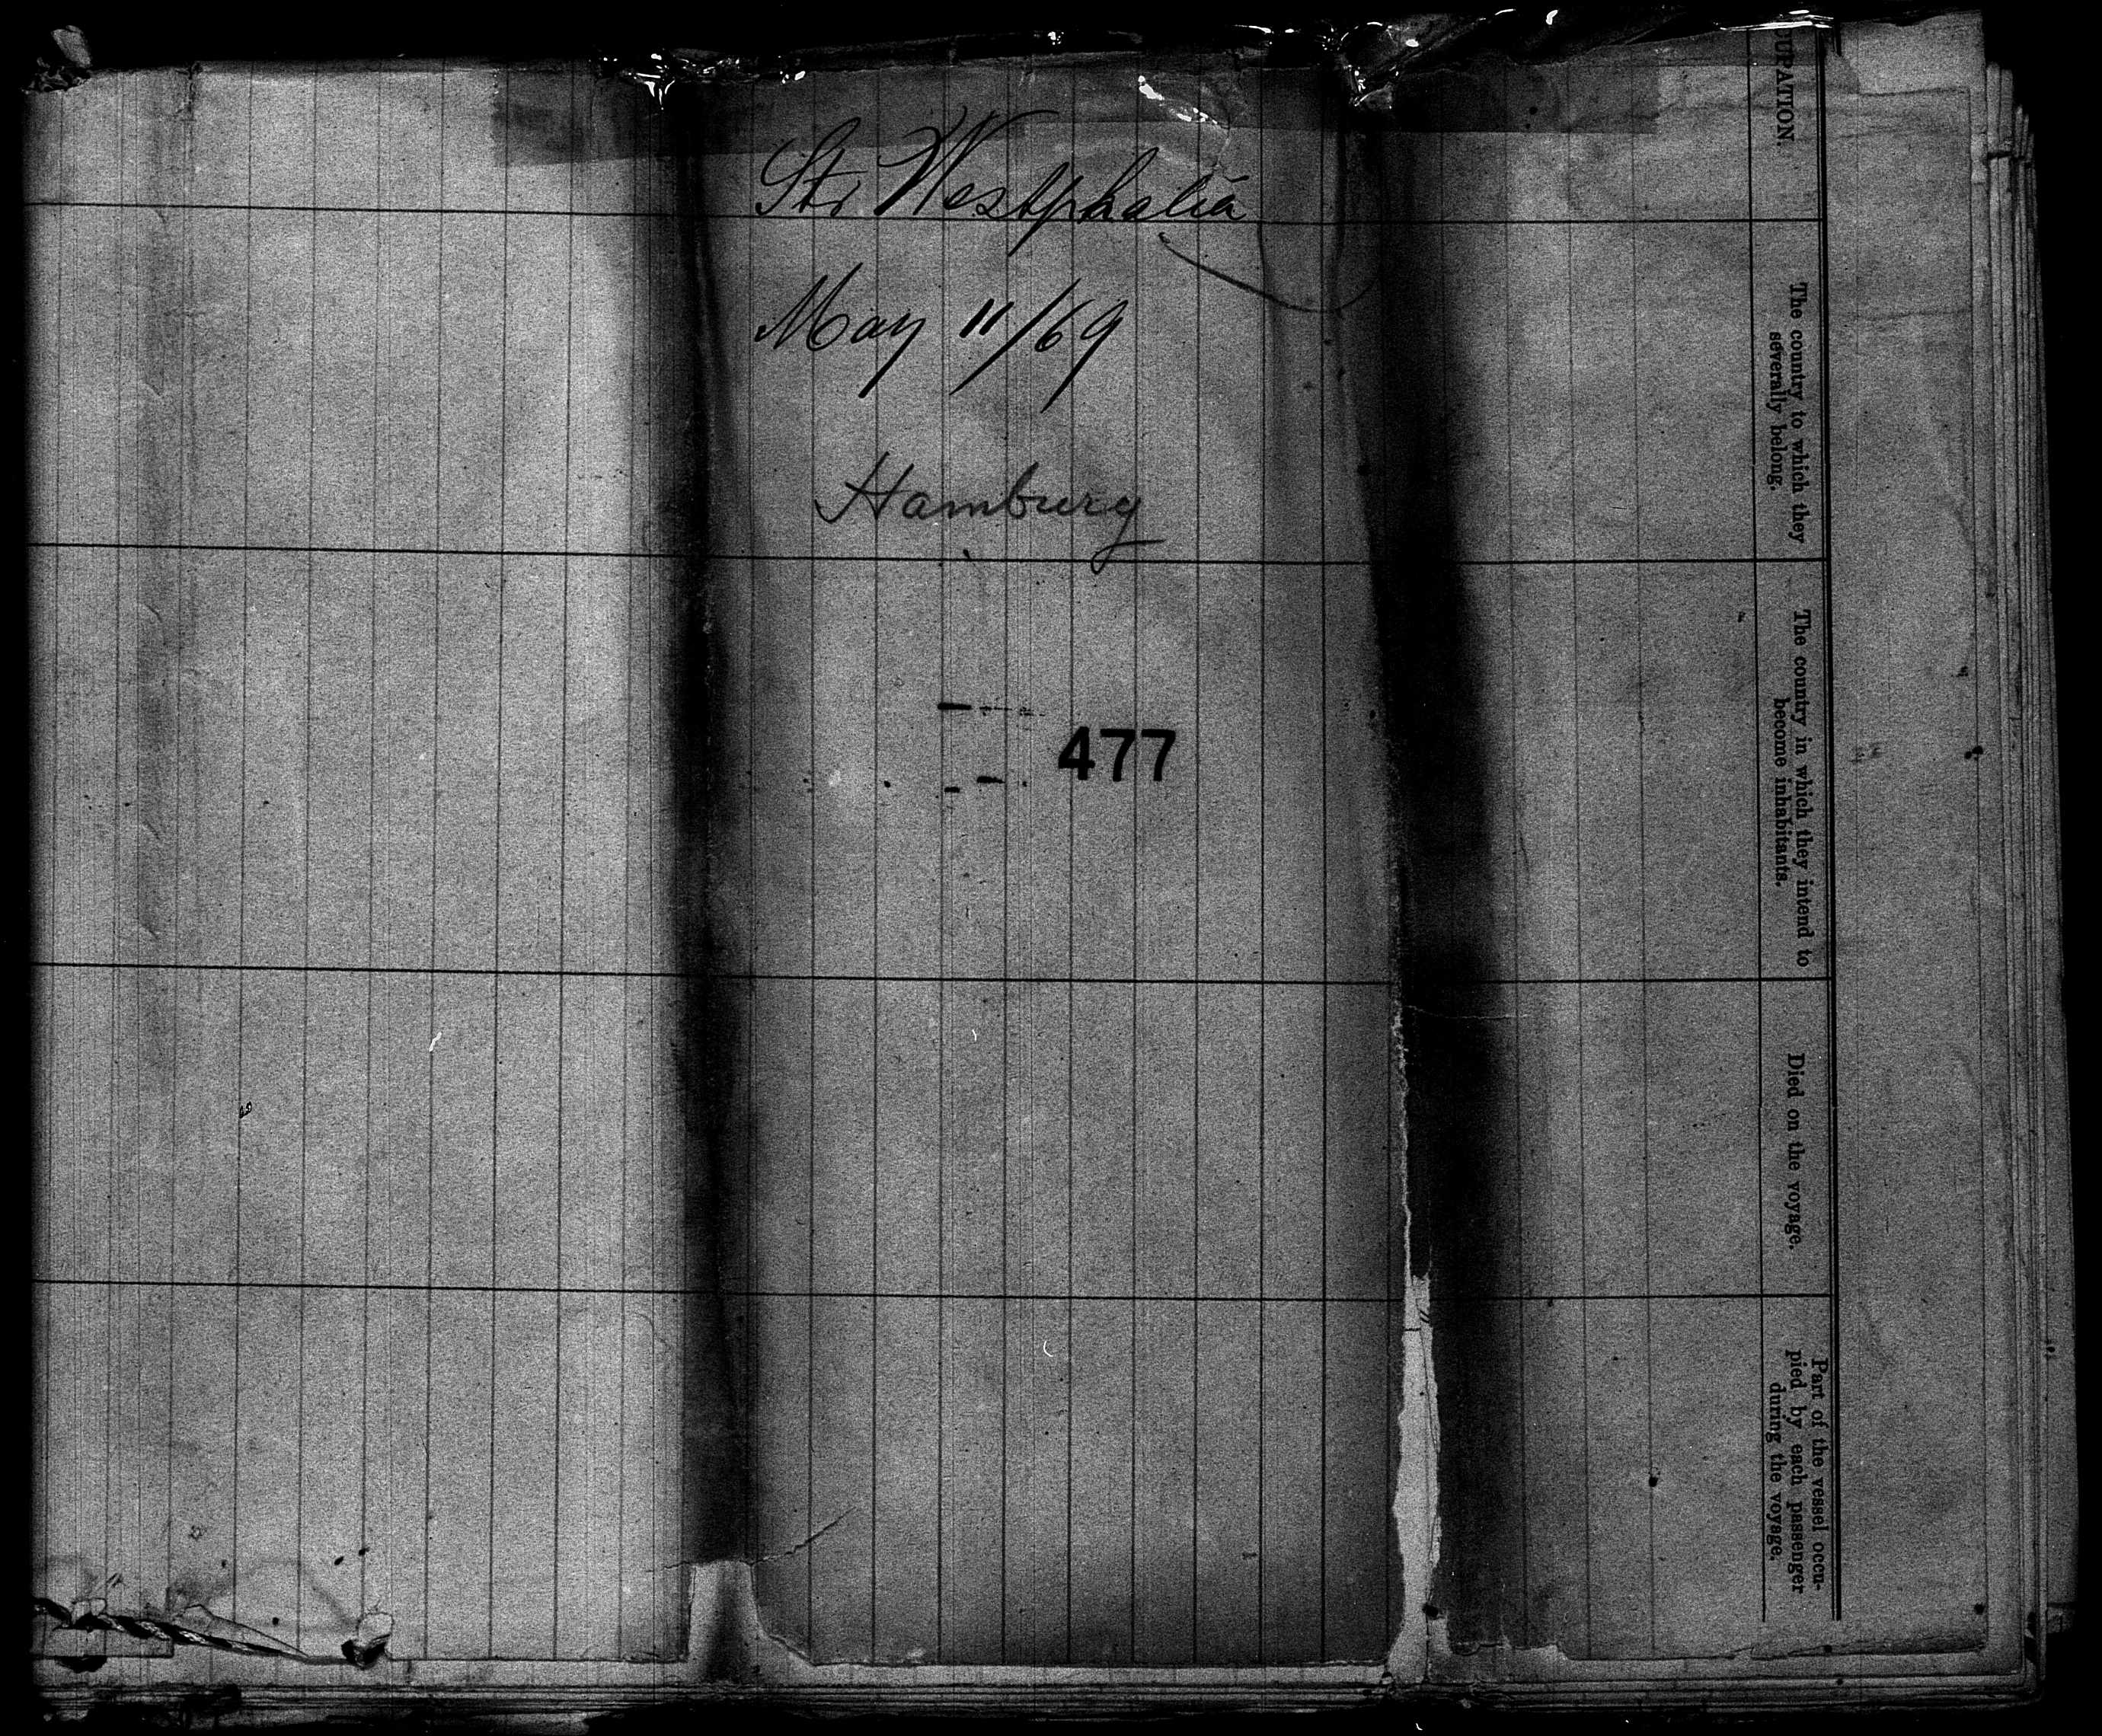 Str Westphalia
May 11/69
Hamburg
477
UPATION.
The country to which they
severally belong.
The country in which they intend to
become inhabitants.
Died on the voyage.
Part of the vessel occu-
pied by each passenger
during the voyage.